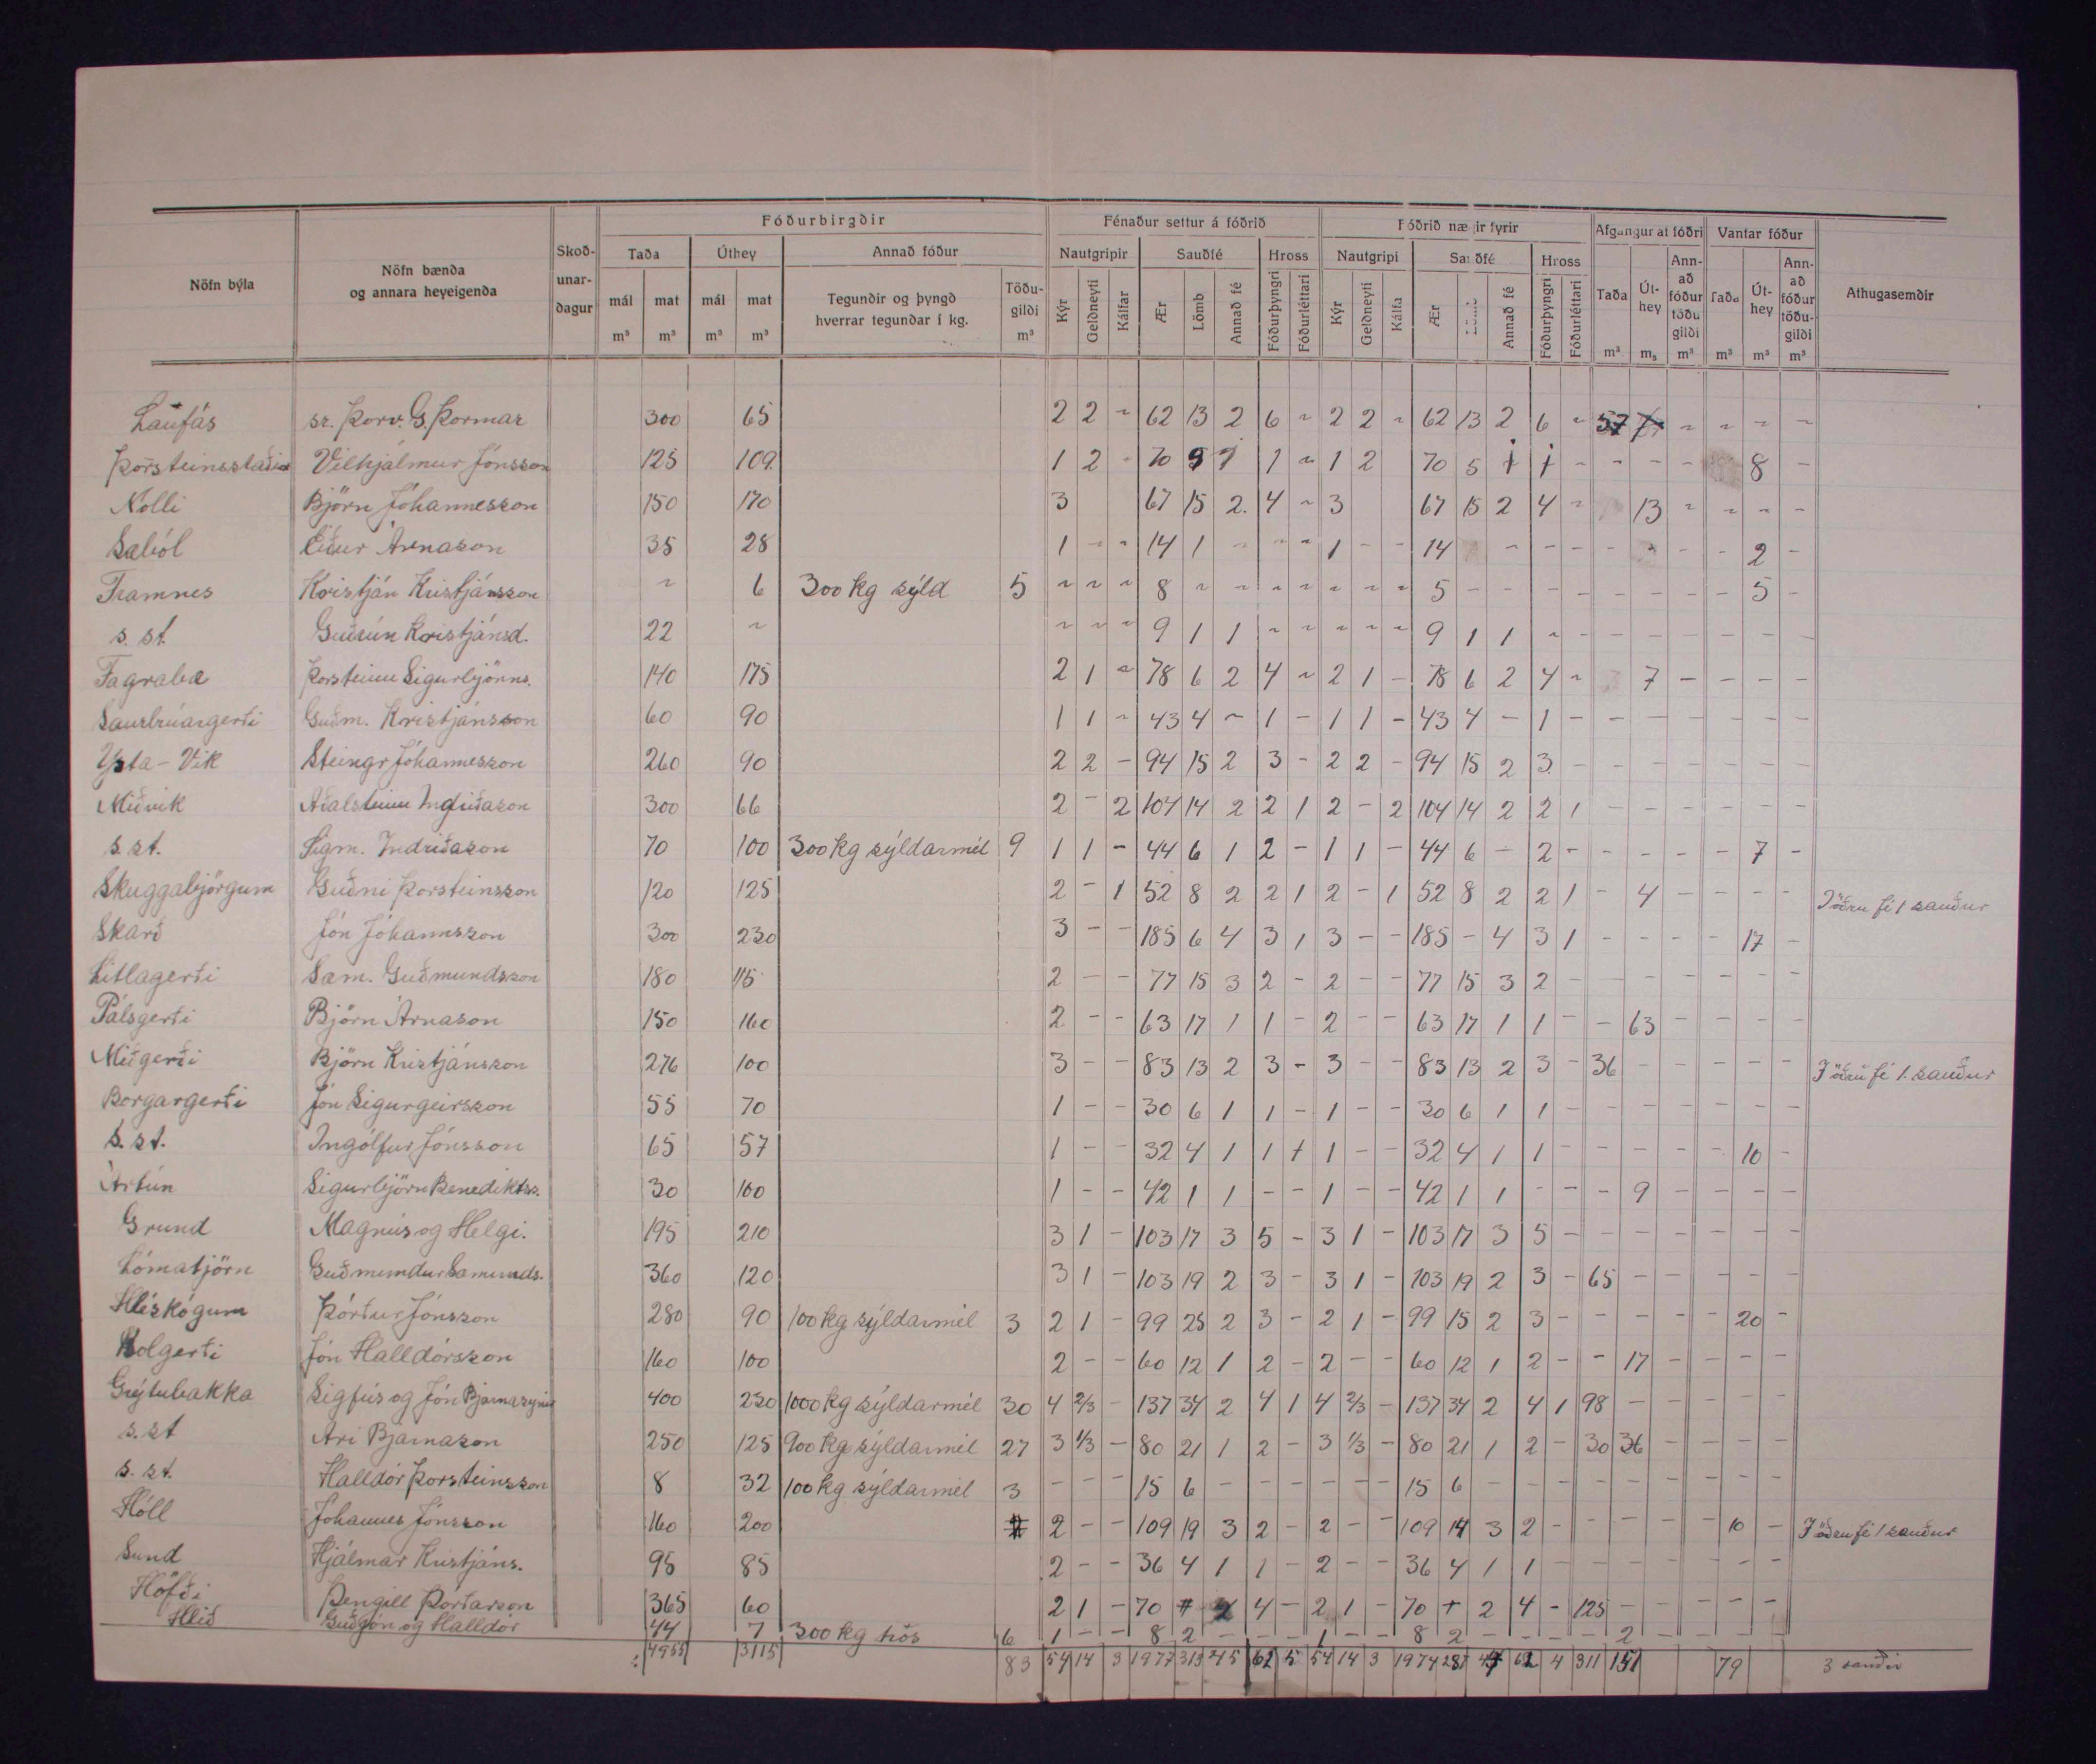 Fóðurbirgðir Fénaður settur á fóðrið Fóðrið nægir fyrir Afgangur af fóðri Vantar fóður
Nöfn býla Nöfn bænda og annara heyeigenda Skoð-unar-dagur Taða Úthey Annað fóður Nautgripir Sauðfé Hross Nautgripi Sauðfé Hross Taða Út-hey Ann-að fóður töðu gildi Taða Út-hey Ann-að fóður töðu-gildi Athugasemðir
mál mat mál mat Tegundir og þyngd hverrar tegundar í kg. Töðu-gildi Kýr Geldneyti Kálfar Ær Lömb Annað fé Fóðurþyngri Fóðurléttari Kýr Geldneyti Kálfa Ær Lömb Annað fé Fóðurþyngri Fóðurléttari
m³ m³ m³ m³ m³ m³ m₃ m³ m³ m³ m³
Laufás sr. Þorv. G. Þormar 300 65 2 2 ~ 62 13 2 6 ~ 2 2 ~ 62 13 2 6 ~ 57 ~ ~ ~ ~
Þorsteinsstaðir Vilhjálmur Jónsson 125 109. 1 2 - 70 5 1 1 ~ 1 2 70 5 1 1 - - - - 8 -
Nolli Björn Jóhannesson 150 170 3 67 15 2. 4 ~ 3 67 15 2 4 ~ 13 ~ ~ ~ ~
Sæból Eiður Árnason 35 28 1 - - 14 1 - - - 1 - - 14 - - - - - - - 2 -
Framnes Kristján Kristjánsson ~ 6 300 kg sýld 5 ~ ~ ~ 8 ~ ~ ~ ~ ~ ~ ~ 5 - - - - - - - - 5 -
s. st. Guðrún Kristjánsd. 22 ~ ~ ~ ~ 9 1 1 ~ ~ ~ ~ ~ 9 1 1 ~ - - - - - - -
Fagrabæ Þorsteinn Sigurbjörns. 140 175 2 1 ~ 78 6 2 4 ~ 2 1 - 78 6 2 4 ~ 7 - - - -
Saurbrúargerði Guðm. Kristjánsson 60 90 1 1 ~ 43 4 ~ 1 - 1 1 - 43 4 - 1 - - - - - - -
Ysta-Vík Steingr Jóhannesson 260 90 2 2 - 94 15 2 3 - 2 2 - 94 15 2 3. - - - - - - -
Miðvík Aðalsteinn Indriðason 300 66 2 - 2 104 14 2 2 1 2 - 2 104 14 2 2 1 - - - - - -
s. st. Sigm. Indriðason 70 100 300 kg sýldarmél 9 1 1 - 44 6 1 2 - 1 1 - 44 6 - 2 - - - - - 7 -
Skuggabjörgum Guðni Þorsteinsson 120 125 2 - 1 52 8 2 2 1 2 - 1 52 8 2 2 1 - 4 - - - - Í öðru fé 1 sauður
Skarð Jón Jóhannsson 300 230 3 - - 185 6 4 3 1 3 - - 185 - 4 3 1 - - - - 17 -
Litlagerði Sam. Guðmundsson 180 115 2 - - 77 15 3 2 - 2 - - 77 15 3 2 - - - - - - -
Pálsgerði Björn Árnason 150 160 2 - - 63 17 1 1 - 2 - - 63 17 1 1 - - 63 - - - -
Miðgerði Björn Kristjánsson 276 100 3 - - 83 13 2 3 - 3 - - 83 13 2 3 - 36 - - - - - Í öðru fé 1. sauður
Borgargerði Jón Sigurgeirsson 55 70 1 - - 30 6 1 1 - 1 - - 30 6 1 1 - - - - - - -
s. st. Ingólfur Jónsson 65 57 1 - - 32 4 1 1 1 1 - - 32 4 1 1 - - - - - 10 -
Ártún Sigurbjörn Benediktss. 30 100 1 - - 42 1 1 - - 1 - - 42 1 1 - - - 9 - - - -
Grund Magnús og Helgi. 195 210 3 1 - 103 17 3 5 - 3 1 - 103 17 3 5 - - - - - - -
Lómatjörn Guðmundur Sæmunds. 360 120 3 1 - 103 19 2 3 - 3 1 - 103 19 2 3 - 65 - - - - -
Hléskógum Þórður Jónsson 280 90 100 kg sýldarmél 3 2 1 - 99 25 2 3 - 2 1 - 99 15 2 3 - - - - - 20 -
Kolgerði Jón Halldórsson 160 100 2 - - 60 12 1 2 - 2 - - 60 12 1 2 - - 17 - - - -
Grýtubakka Sigfús og Jón Bjarnasynir 400 230 1000 kg sýldarmél 30 4 2/3 - 137 34 2 4 1 4 2/3 - 137 34 2 4 1 98 - - - - -
s. st Ari Bjarnason 250 125 900 kg sýldarmél 27 3 1/3 - 80 21 1 2 - 3 1/3 - 80 21 1 2 - 30 36 - - - -
s. st. Halldór Þorsteinsson 8 32 100 kg sýldarmél 3 - - - 15 6 - - - - - - 15 6 - - - - - - - - -
Hóll Jóhannes Jónsson 160 200 2 - - 109 19 3 2 - 2 - - 109 14 3 2 - - - - - 10 - Í öðru fé 1 sauður
Sund Hjálmar Kristjáns. 95 85 2 - - 36 4 1 1 - 2 - - 36 4 1 1 - - - - - - -
Höfði Þengill Þórðarson 365 60 2 1 - 70 2 4 - 2 1 - 70 2 4 - 125 - - - - -
Hlíð Guðjón og Halldór 44 7 300 kg hrós 6 1 - - 8 2 - - - 1 - - 8 2 - - - - 2 - - - -
4955 3115 83 54 14 3 1977 313 45 62 5 54 14 3 1974 281 62 4 311 151 79 3 sauðir